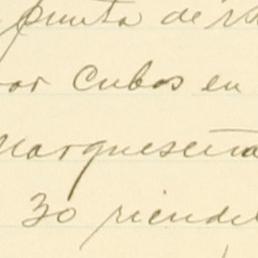 punta de
por Cubos en
Marqueseña
30 riende